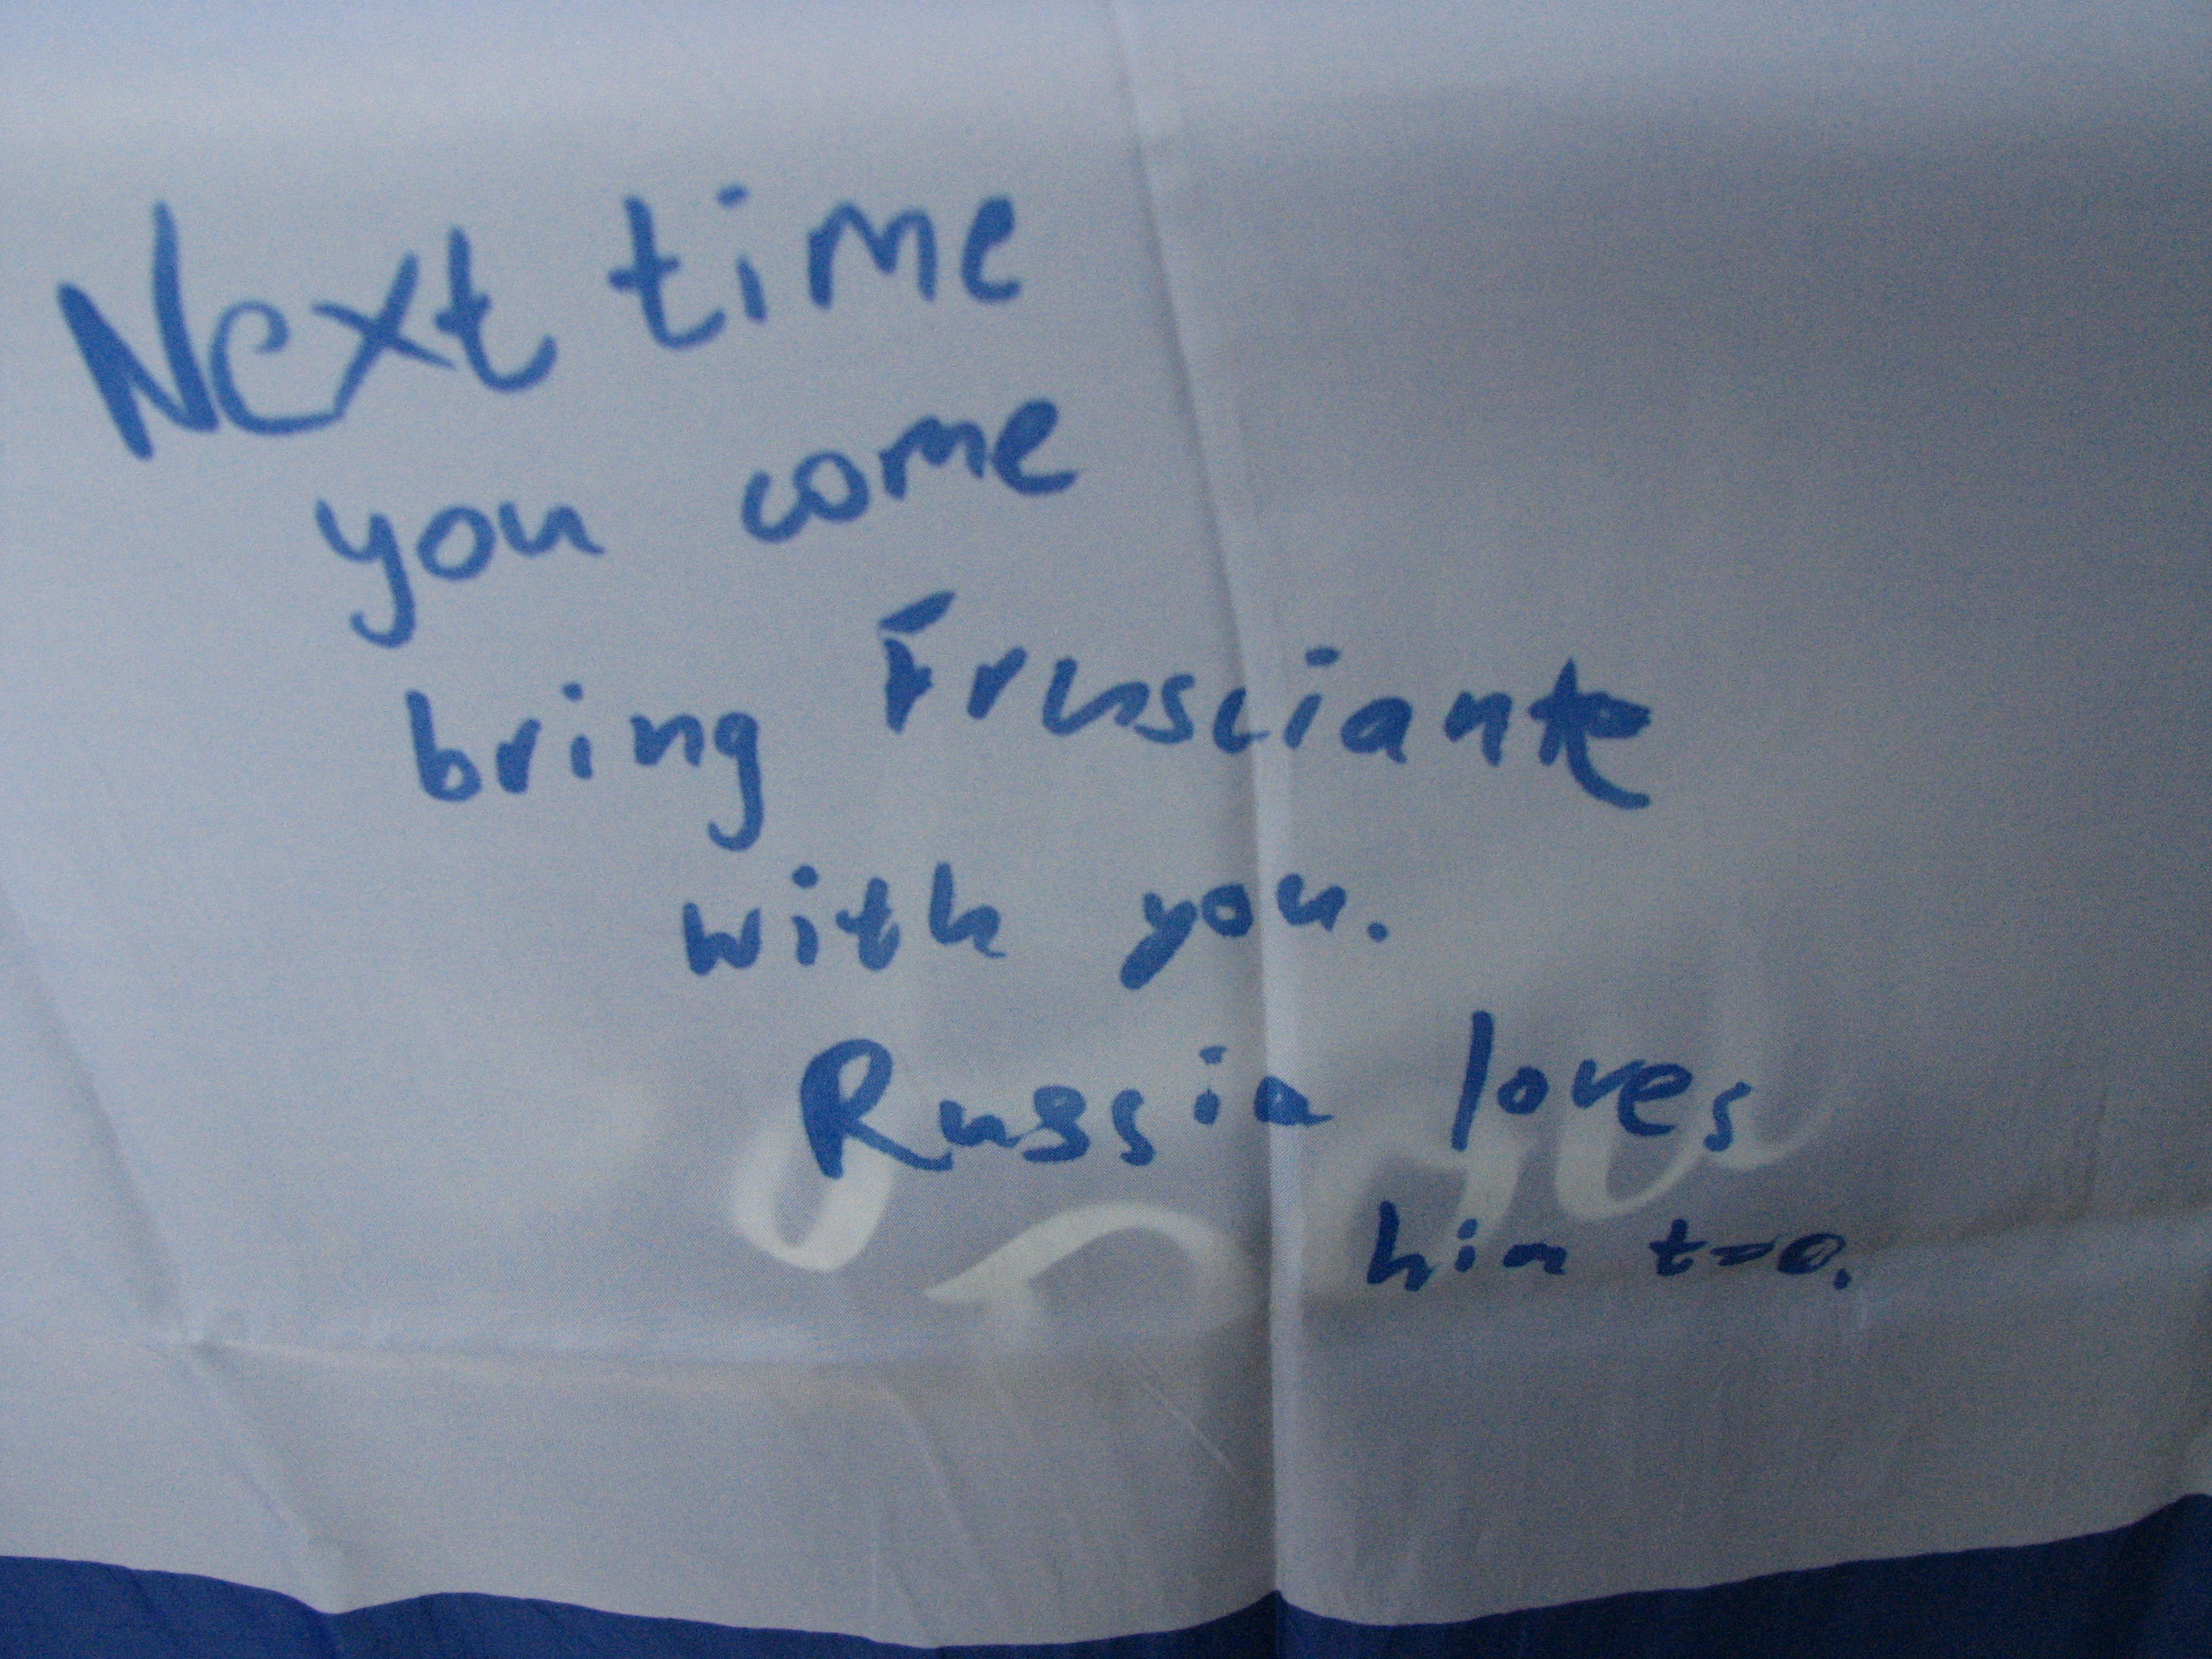 Next time
you come
bring Frusciante
with you.
Russia loves
him too.